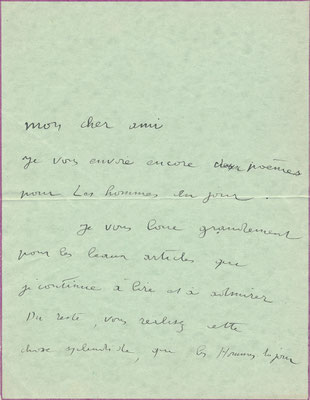 mon cher ami
Je vous envoie encore deux poëmes
pour Les hommes du jour.
Je vous loue grandement
pour les beaux articles que
je continue à lire et à admirer
Du reste, vous réalisez cette
chose splendide, que les Hommes du jour